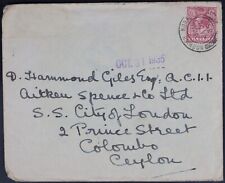 OCT 31 1935
D. Hammond Gyles Esq. A.C.I.I.
Aitken Spence & Co Ltd
S. S. City of London
2 Prince Street
Colombo
Ceylon